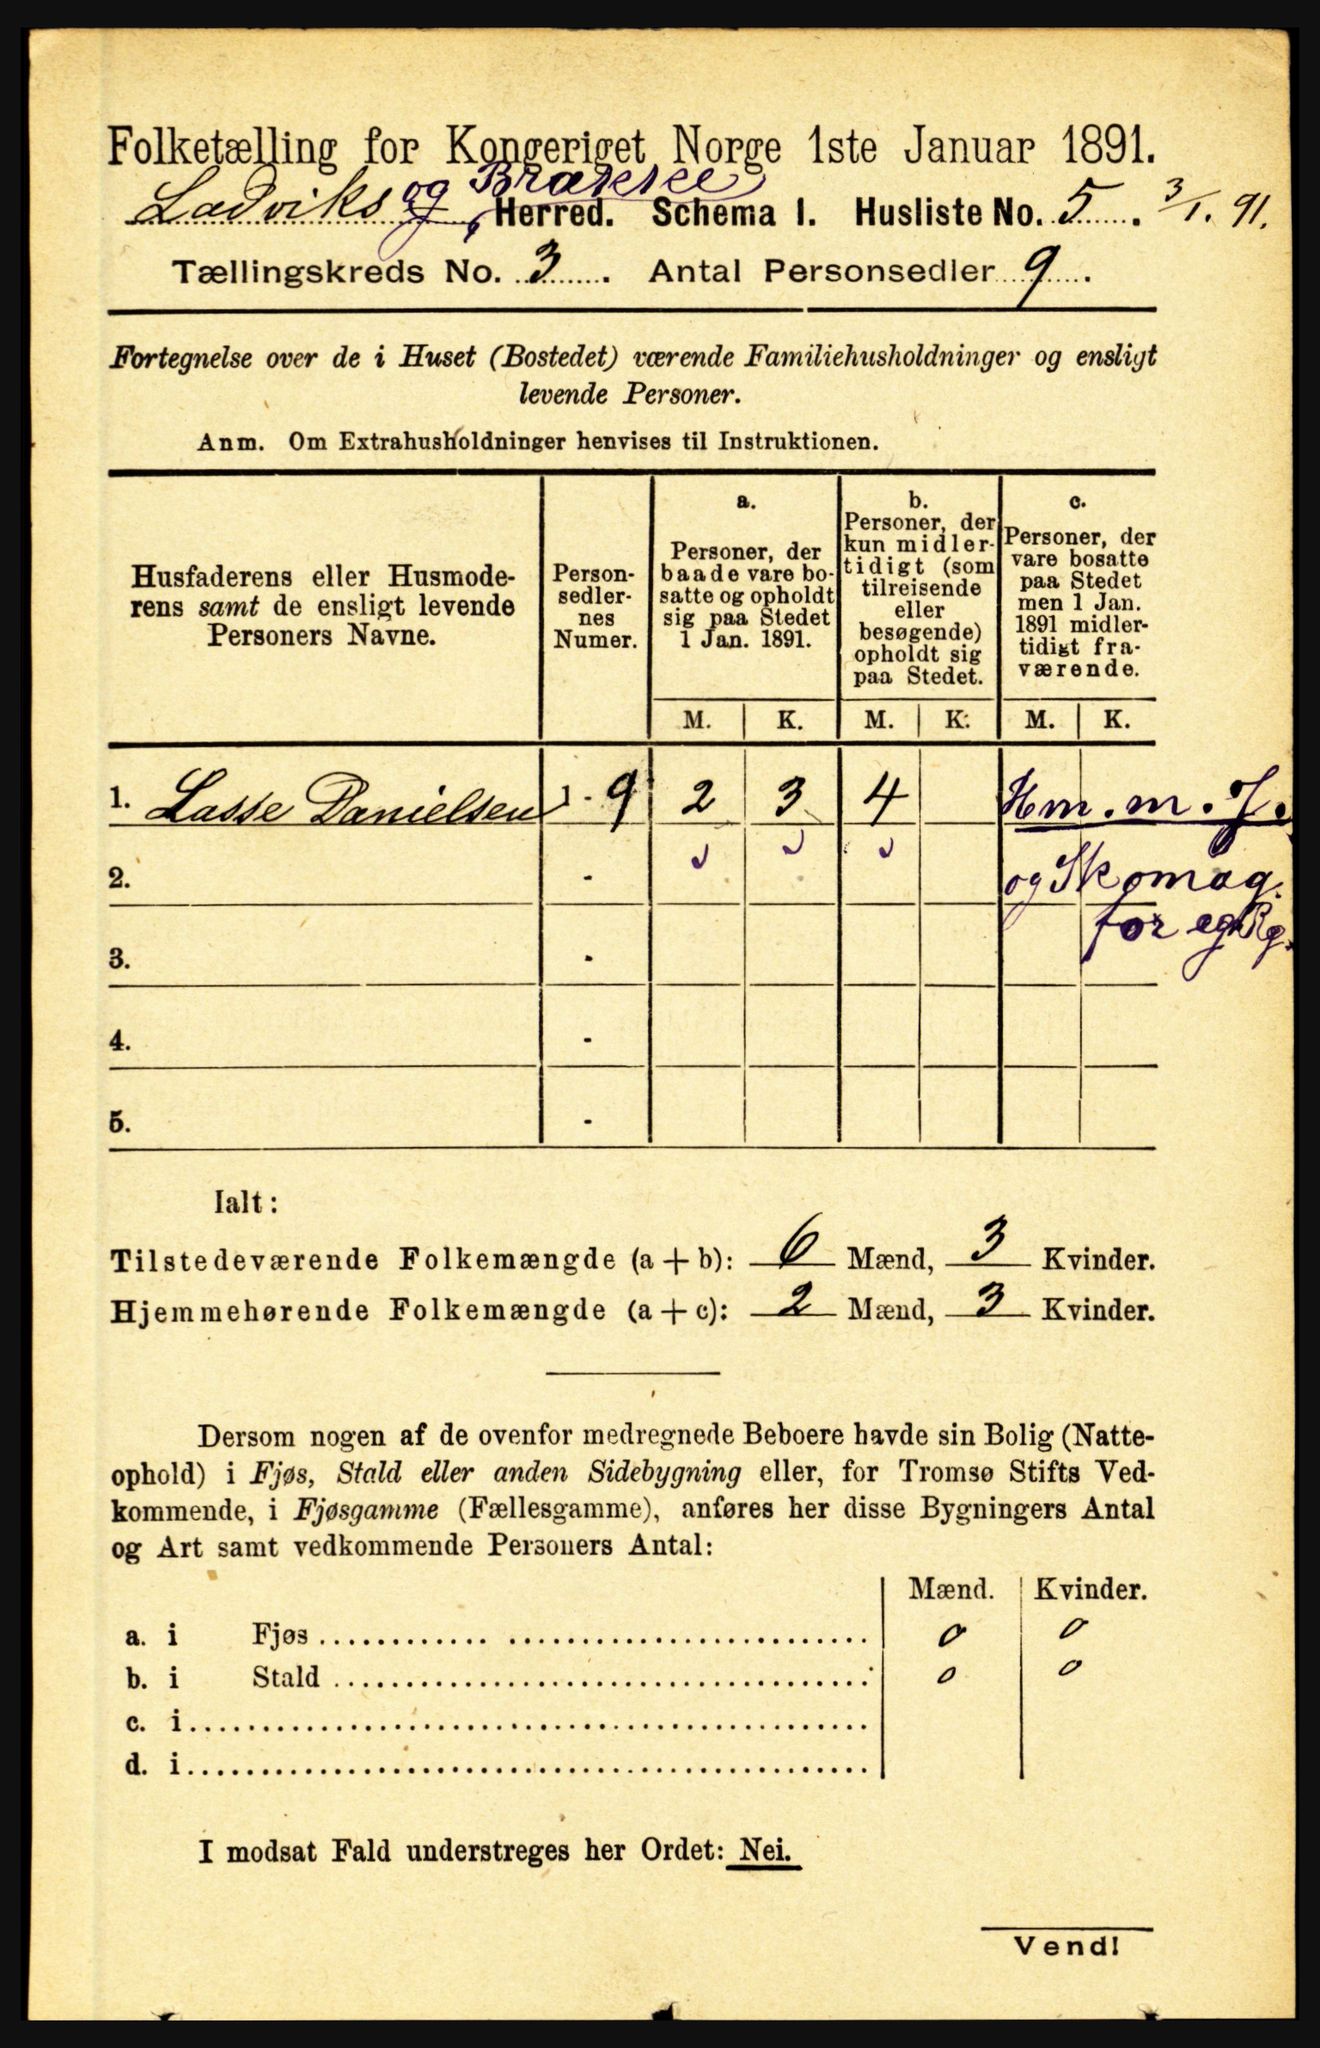 Folketælling for Kongeriget Norge 1ste Januar 1891.
Ladviks og Brække Herred. Schema I. Husliste No. 5. 3/1. 91.
Tællingskreds No. 3. Antal Personsedler 9.
Fortegnelse over de i Huset (Bostedet) værende Familiehusholdninger og ensligt
levende Personer.
Anm. Om Extrahusholdninger henvises til Instruktionen.
Husfaderens eller Husmode-
rens samt de ensligt levende
Personers Navne.
Person-
sedler-
nes
Numer.
a.
Personer, der
baade vare bo-
satte og opholdt
sig paa Stedet
1 Jan. 1891.
b.
Personer, der
kun midler-
tidigt (som
tilreisende
eller
besøgende)
opholdt sig
paa Stedet.
c.
Personer, der
vare bosatte
paa Stedet
men 1 Jan.
1891 midler-
tidigt fra-
værende.
M. K. M. K. M. K.
1. Lasse Danielsen 1 - 9 2 3 4 Hm. m. J.
2. - og Skomag.
for eg. Rg.
3. -
4. -
5. -
Ialt:
Tilstedeværende Folkemængde (a + b): 6 Mænd, 3 Kvinder.
Hjemmehørende Folkemængde (a + c): 2 Mænd, 3 Kvinder.
Dersom nogen af de ovenfor medregnede Beboere havde sin Bolig (Natte-
ophold) i Fjøs, Stald eller anden Sidebygning eller, for Tromsø Stifts Ved-
kommende, i Fjøsgamme (Fællesgamme), anføres her disse Bygningers Antal
og Art samt vedkommende Personers Antal:
Mænd. Kvinder.
a. i Fjøs 0 0
b. i Stald 0 0
c. i
d. i
I modsat Fald understreges her Ordet: Nei.
Vend!